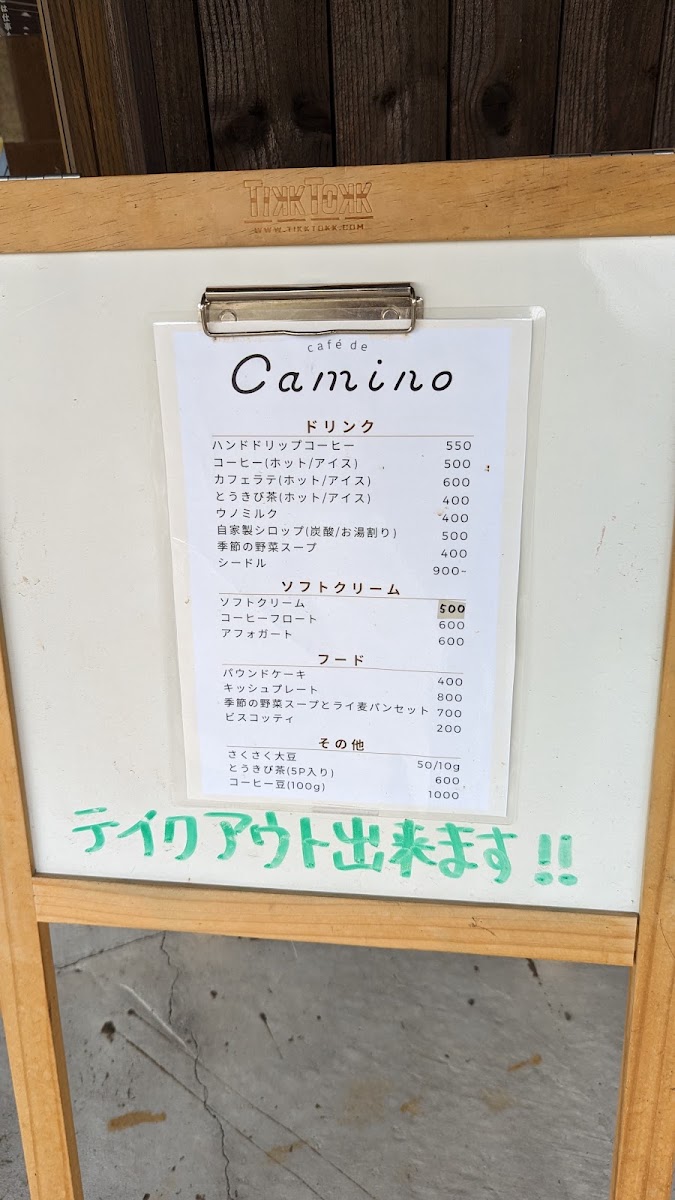 TIKKTOKK
WWW.TIKKTOKK.COM
café de
Camino
ドリンク
ハンドドリップコーヒー 550
コーヒー(ホット/アイス) 500
カフェラテ(ホット/アイス) 600
とうきび茶(ホット/アイス) 400
ウノミルク 400
自家製シロップ(炭酸/お湯割り) 500
季節の野菜スープ 400
シードル 900-
ソフトクリーム
ソフトクリーム 500
コーヒーフロート 600
アフォガート 600
フード
パウンドケーキ 400
キッシュプレート 800
季節の野菜スープとライ麦パンセット 700
ビスコッティ 200
その他
さくさく大豆 50/10g
とうきび茶(5P入り) 600
コーヒー豆(100g) 1000
テイクアウト出来ます!!